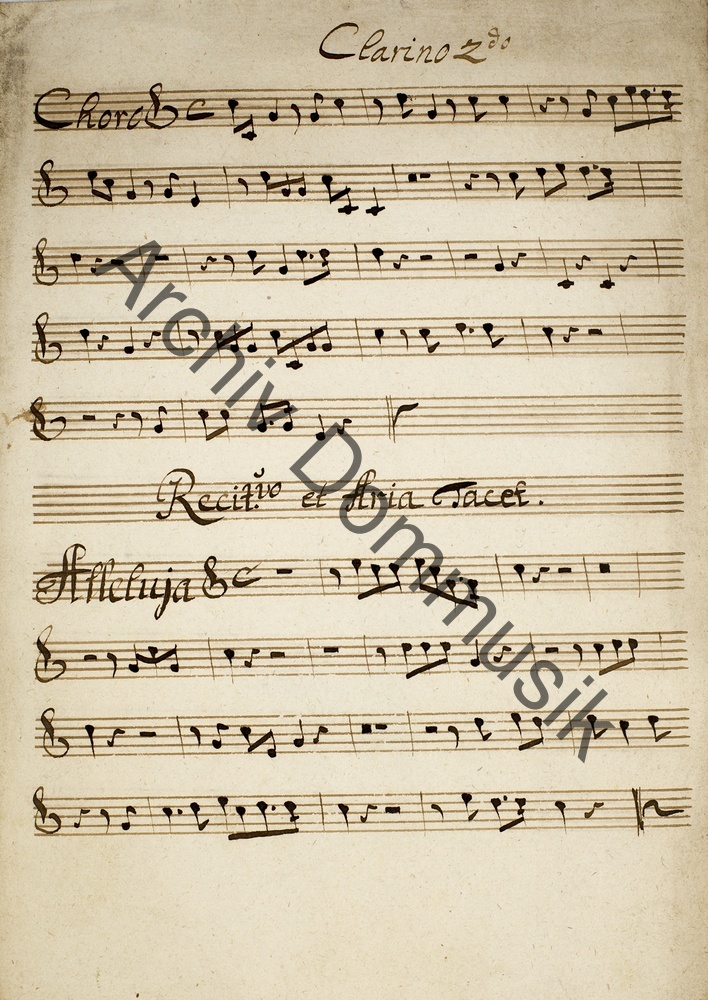 Clarino 2do
Choro
Recit:vo et Aria Tacet.
Alleluja
Archiv Dommusik